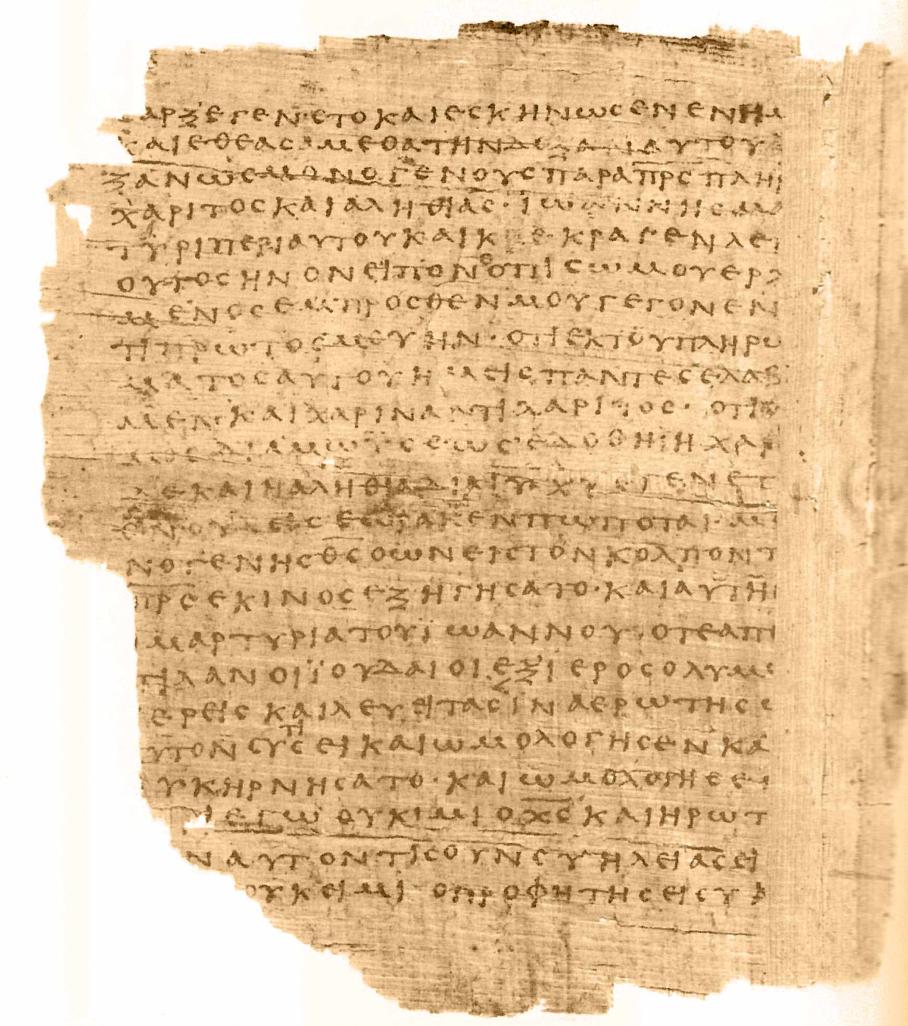 ΣΑΡΞ ΕΓΕΝΕΤΟ ΚΑΙ ΕΣΚΗΝΩΣΕΝ ΕΝ ΗΜ
ΚΑΙ ΕΘΕΑΣΑΜΕΘΑ ΤΗΝ ΔΟΞΑΝ ΑΥΤΟΥ
ΞΑΝ ΩΣ ΜΟΝΟΓΕΝΟΥΣ ΠΑΡΑ ΠΡΣ ΠΛΗΡ
ΧΑΡΙΤΟΣ ΚΑΙ ΑΛΗΘΙΑΣ· ΙΩΑΝΝΗΣ ΜΑ
ΤΥΡΙ ΠΕΡΙ ΑΥΤΟΥ ΚΑΙ ΚΕΚΡΑΓΕΝ ΛΕΓ
ΟΥΤΟΣ ΗΝ ΟΝ ΕΙΠΟΝ Ο ΟΠΙΣΩ ΜΟΥ ΕΡΧ
ΜΕΝΟΣ ΕΜΠΡΟΣΘΕΝ ΜΟΥ ΓΕΓΟΝΕΝ
ΤΙ ΠΡΩΤΟΣ ΜΟΥ ΗΝ· ΟΤΙ ΕΚ ΤΟΥ ΠΛΗΡΩ
ΜΑΤΟΣ ΑΥΤΟΥ ΗΜΕΙΣ ΠΑΝΤΕΣ ΕΛΑΒ
ΜΕΝ· ΚΑΙ ΧΑΡΙΝ ΑΝΤΙ ΧΑΡΙΤΟΣ· ΟΤΙ
ΜΟΣ ΔΙΑ ΜΩΥΣΕΩΣ ΕΔΟΘΗ Η ΧΑΡ
ΔΕ ΚΑΙ Η ΑΛΗΘΙΑ ΔΙΑ ΙΥ ΧΥ ΕΓΕΝΕΤ
ΘΝ ΟΥΔΕΙΣ ΕΩΡΑΚΕΝ ΠΩΠΟΤΑΙ· ΜΟ
ΝΟΓΕΝΗΣ ΘΣ Ο ΩΝ ΕΙΣ ΤΟΝ ΚΟΛΠΟΝ Τ
ΠΡΣ ΕΚΙΝΟΣ ΕΞΗΓΗΣΑΤΟ· ΚΑΙ ΑΥΤΗ
ΜΑΡΤΥΡΙΑ ΤΟΥ ΙΩΑΝΝΟΥ· ΟΤΕ ΑΠΕ
ΤΙΛΑΝ ΟΙ ΙΟΥΔΑΙΟΙ ΕΞ ΙΕΡΟΣΟΛΥΜΩ
ΕΡΕΙΣ ΚΑΙ ΛΕΥΕΙΤΑΣ ΙΝΑ ΕΡΩΤΗΣΩ
ΥΤΟΝ ΣΥ ΤΙΣ ΕΙ ΚΑΙ ΩΜΟΛΟΓΗΣΕΝ ΚΑ
ΥΚ ΗΡΝΗΣΑΤΟ· ΚΑΙ ΩΜΟΛΟΓΗΣΕΝ
ΤΙ ΕΓΩ ΟΥΚ ΙΜΙ Ο ΧΣ ΚΑΙ ΗΡΩΤ
Ν ΑΥΤΟΝ ΤΙΣ ΟΥΝ ΣΥ ΗΛΕΙΑΣ ΕΙ
ΟΥΚ ΕΙΜΙ Ο ΠΡΟΦΗΤΗΣ ΕΙ ΣΥ Κ